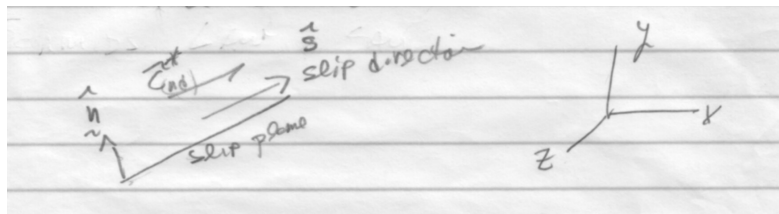 ŝ
slip direction
n̂
slip plane
y
x
z